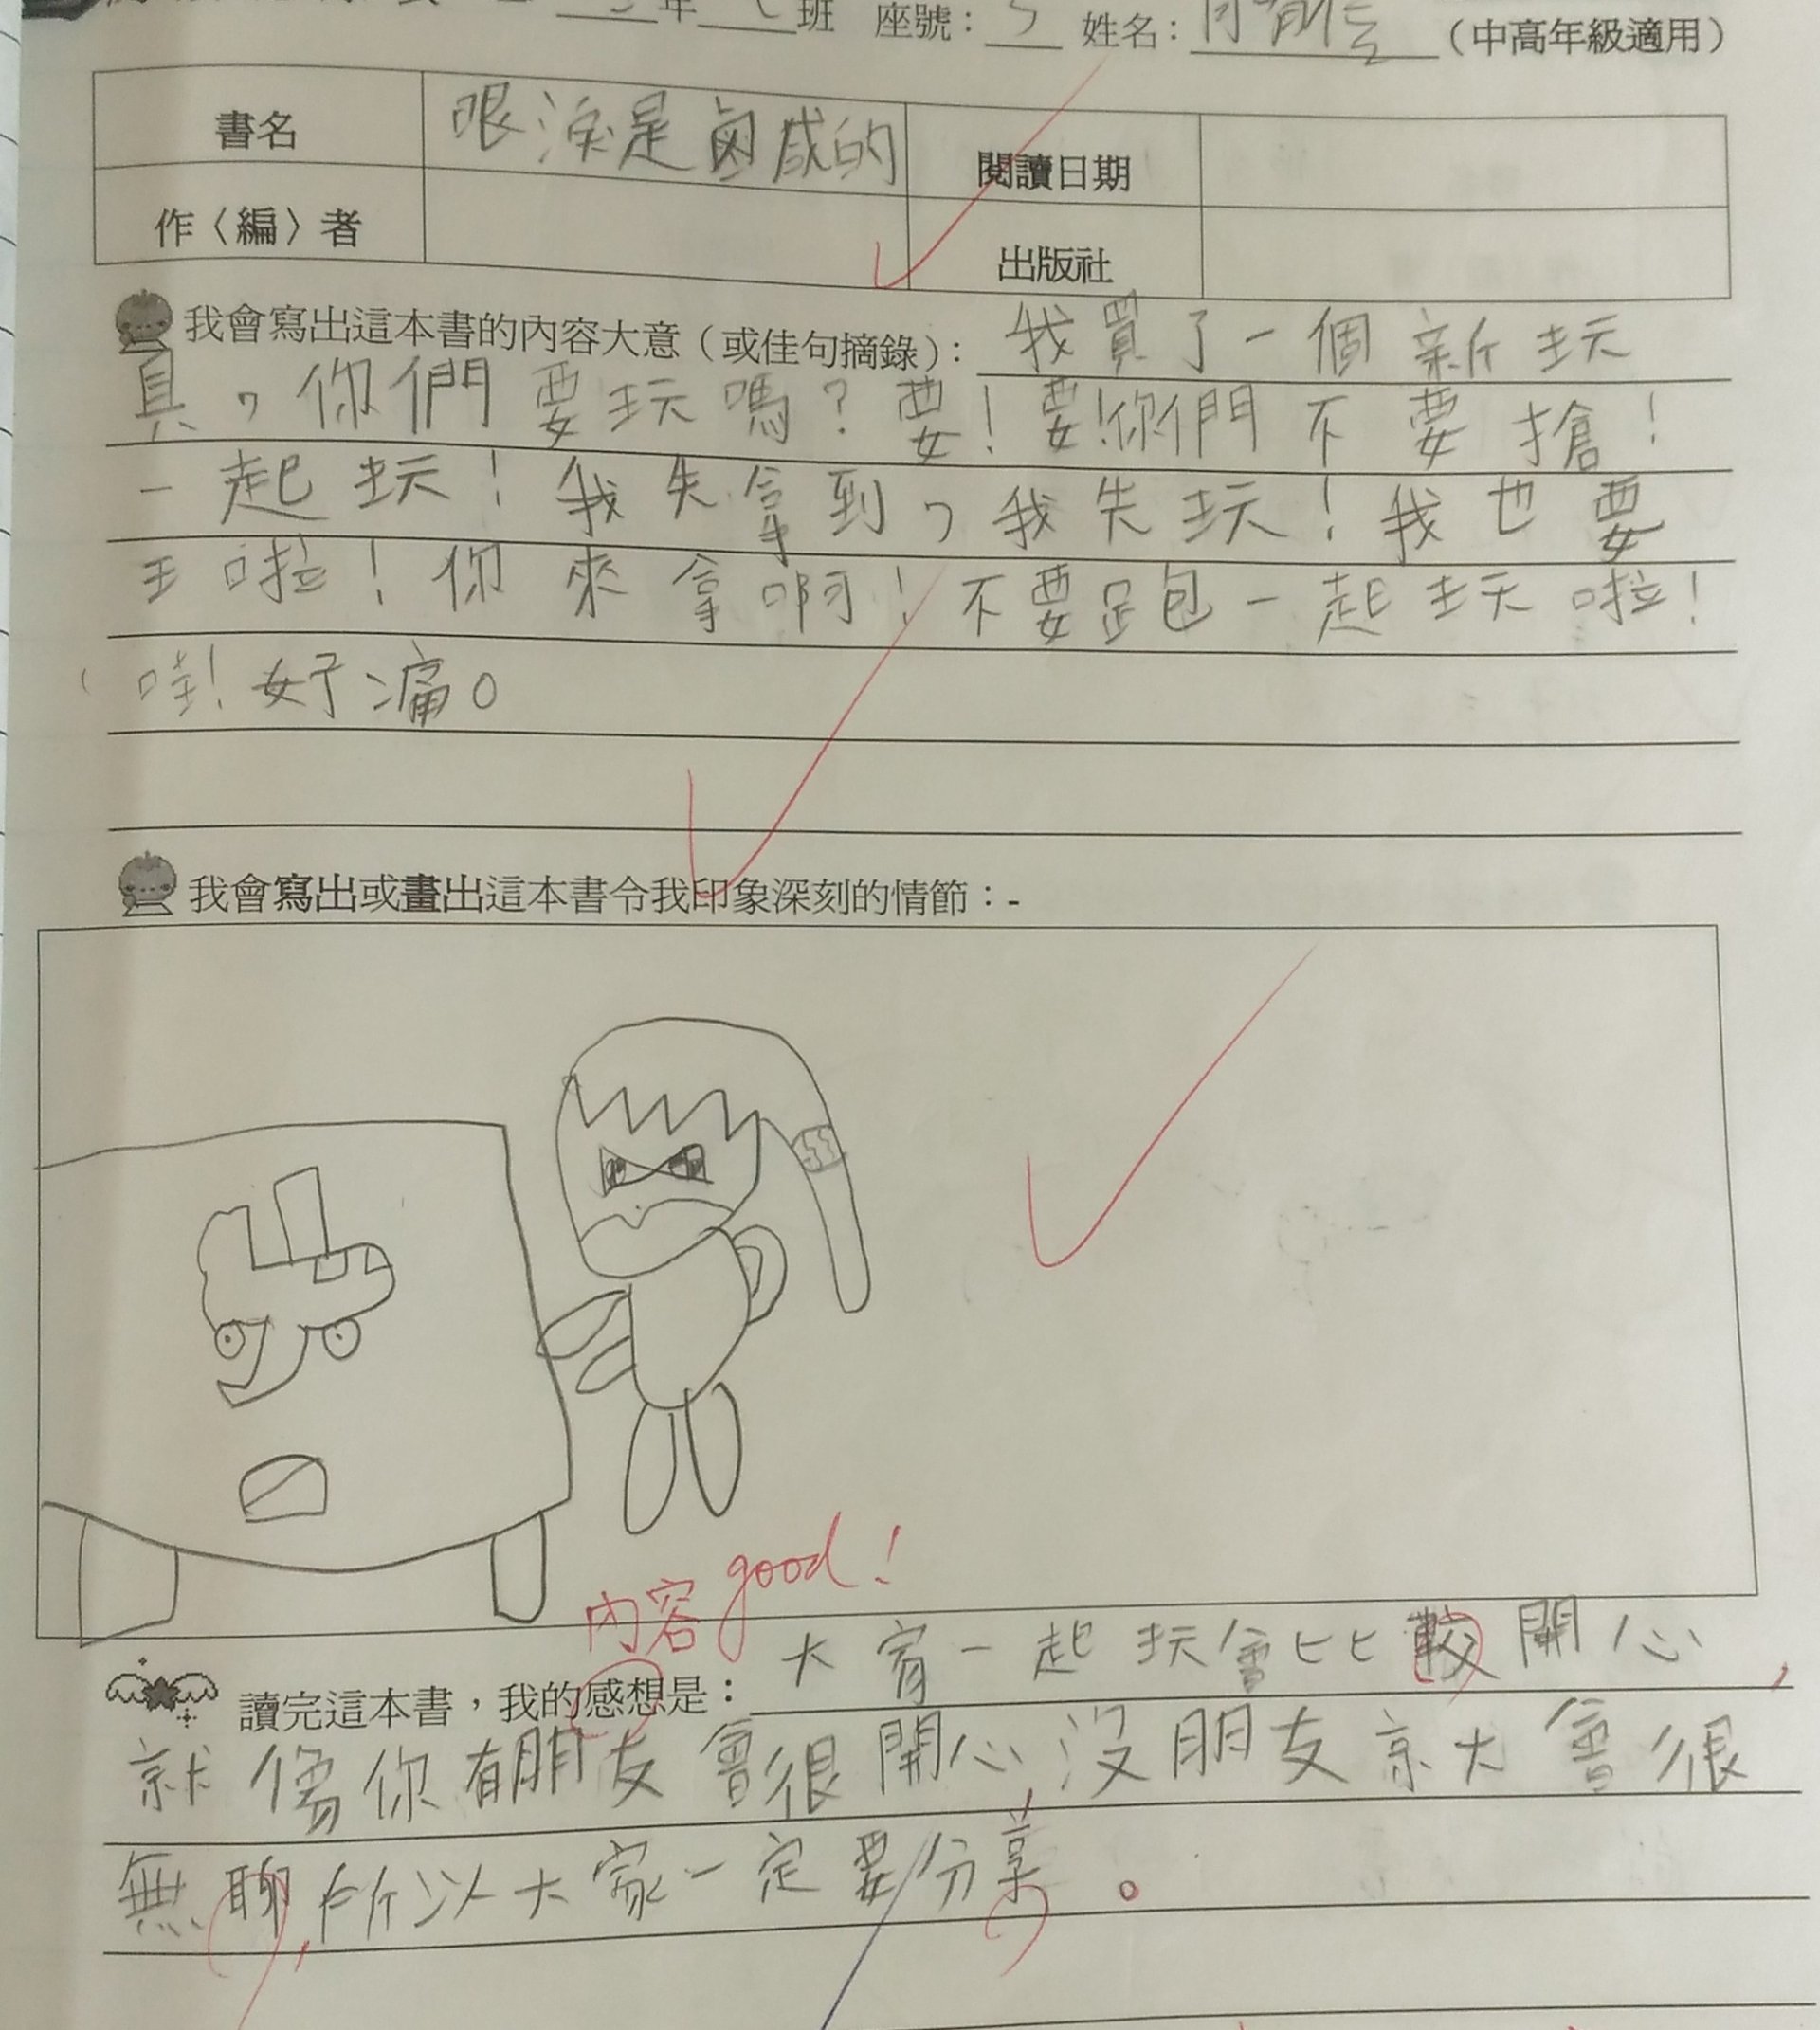 年 班 座號： 姓名： （中高年級適用）
書名 眼淚是鹹的 閱讀日期
作〈編〉者 出版社
我會寫出這本書的內容大意（或佳句摘錄）： 我買了一個新玩
具，你們要玩嗎？要！要！你們不要搶！
一起玩！我失拿到，我失玩！我也要
王啦！你來拿啊！不要跑一起玩啦！
哇！好痛。
我會寫出或畫出這本書令我印象深刻的情節：-
內容good！
讀完這本書，我的感想是： 大家一起玩會比較開心，
就像你有朋友會很開心，沒朋友就會很
無聊，所以大家一定要分享。